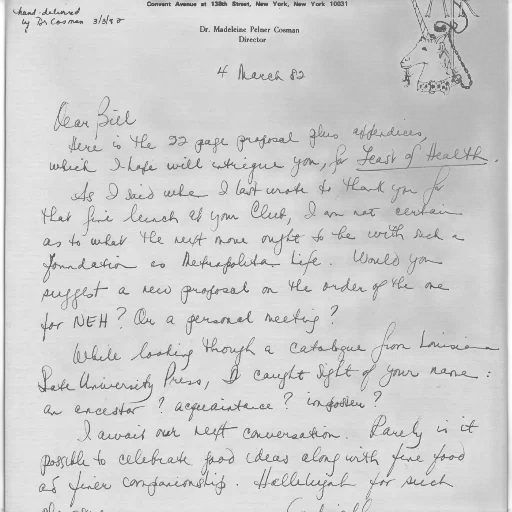 hand-delivered
by Dr Cosman 3/3/82
Convent Avenue at 138th Street, New York, New York 10031
Dr. Madeleine Pelner Cosman
Director
4 March 82
Dear Bill
Here is the 22 page proposal plus appendices,
which I hope will intrigue you, for Feast of Health.
As I said when I last wrote to thank you for
that fine lunch at your Club, I am not certain
as to what the next move ought to be with such a
foundation as Metropolitan Life. Would you
suggest a new proposal on the order of the one
for NEH? Or a personal meeting?
While looking through a catalogue from Louisiana
State University Press, I caught sight of your name:
an ancestor? acquaintance? imposter?
I await our next conversation. Rarely is it
possible to celebrate food ideas along with fine food
as finer companionship. Hallelujah for such